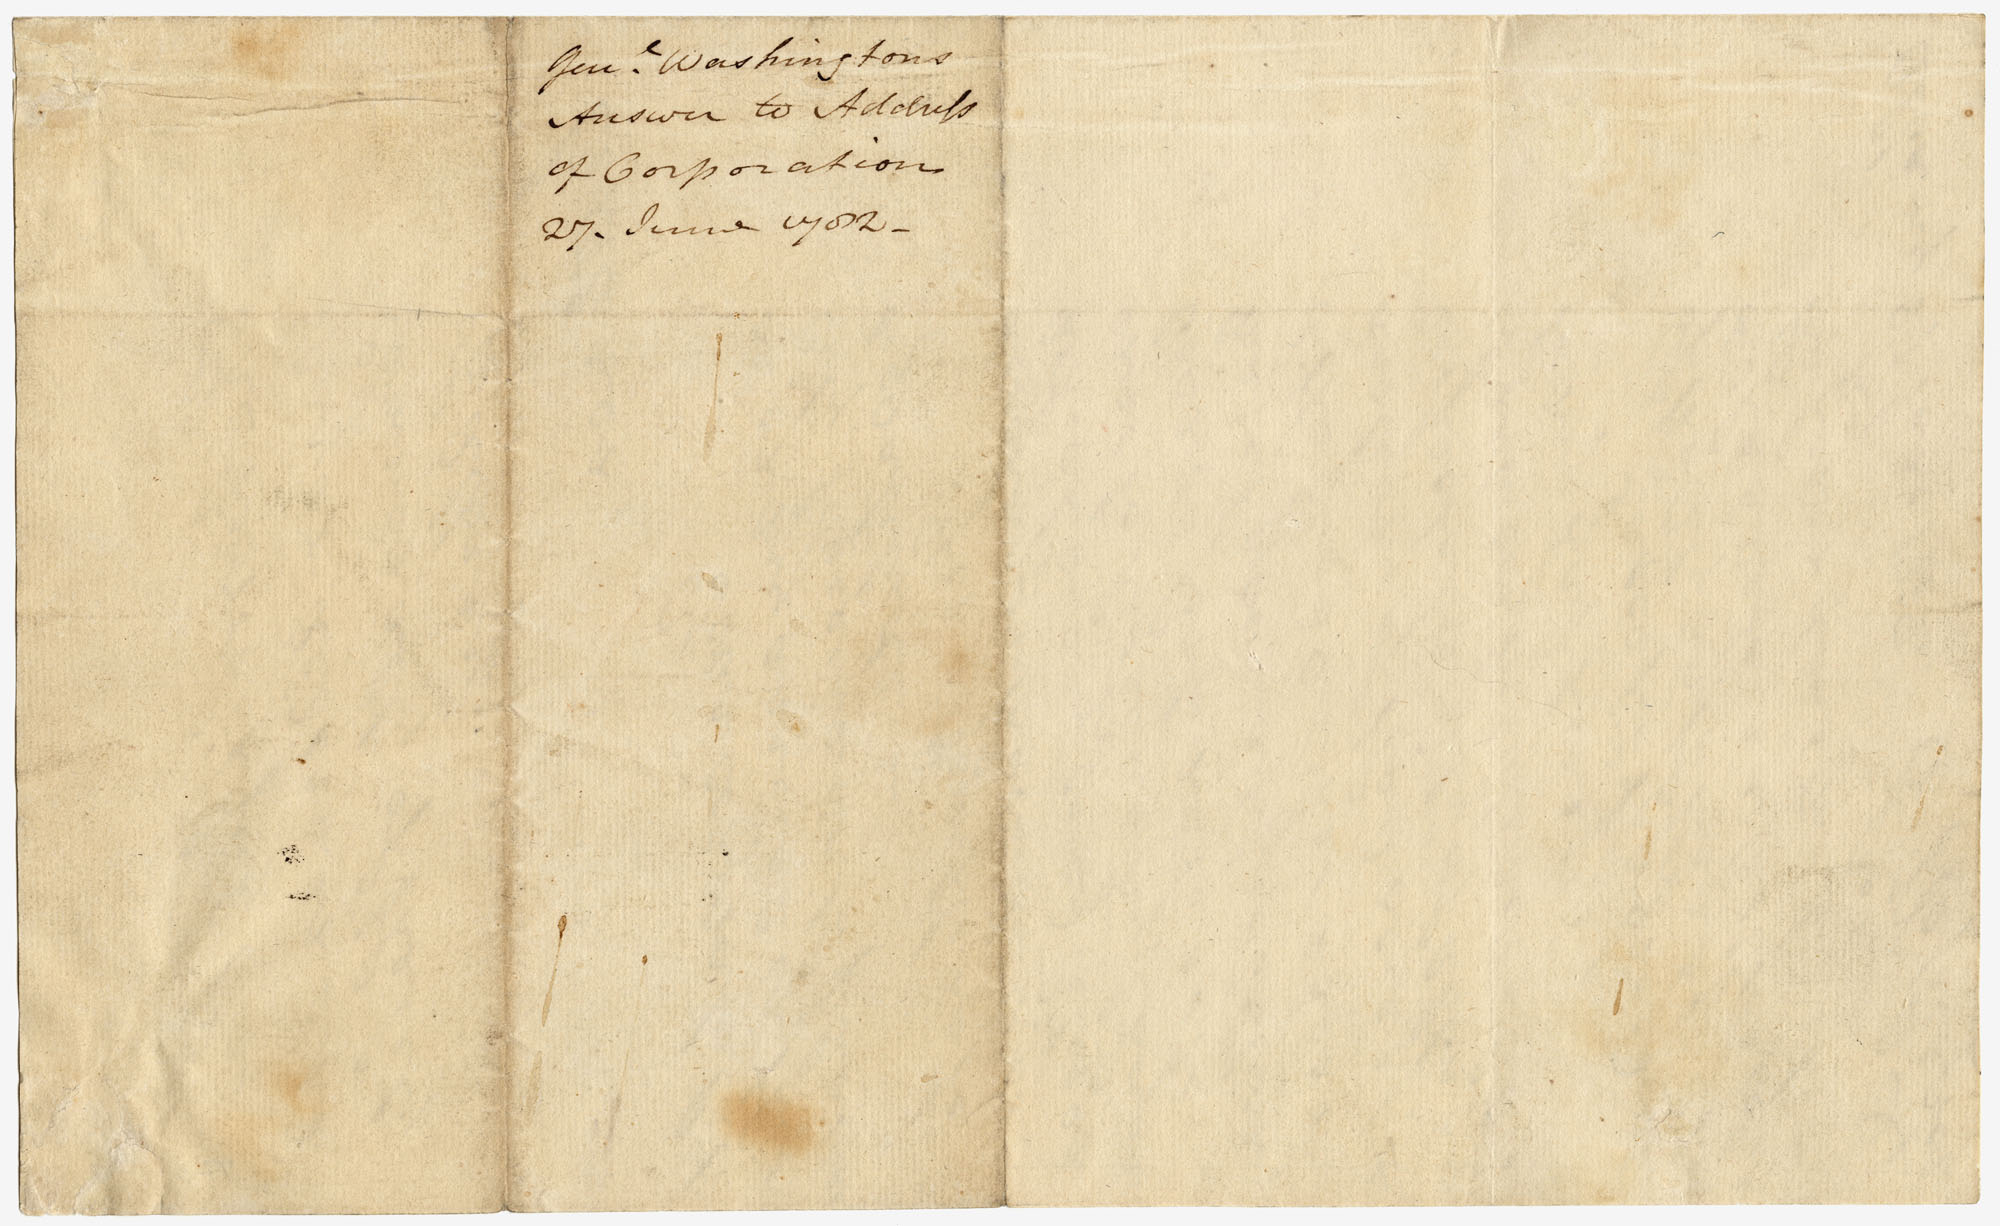 Genl. Washingtons
Answer to Address
of Corporation
27. June 1782-